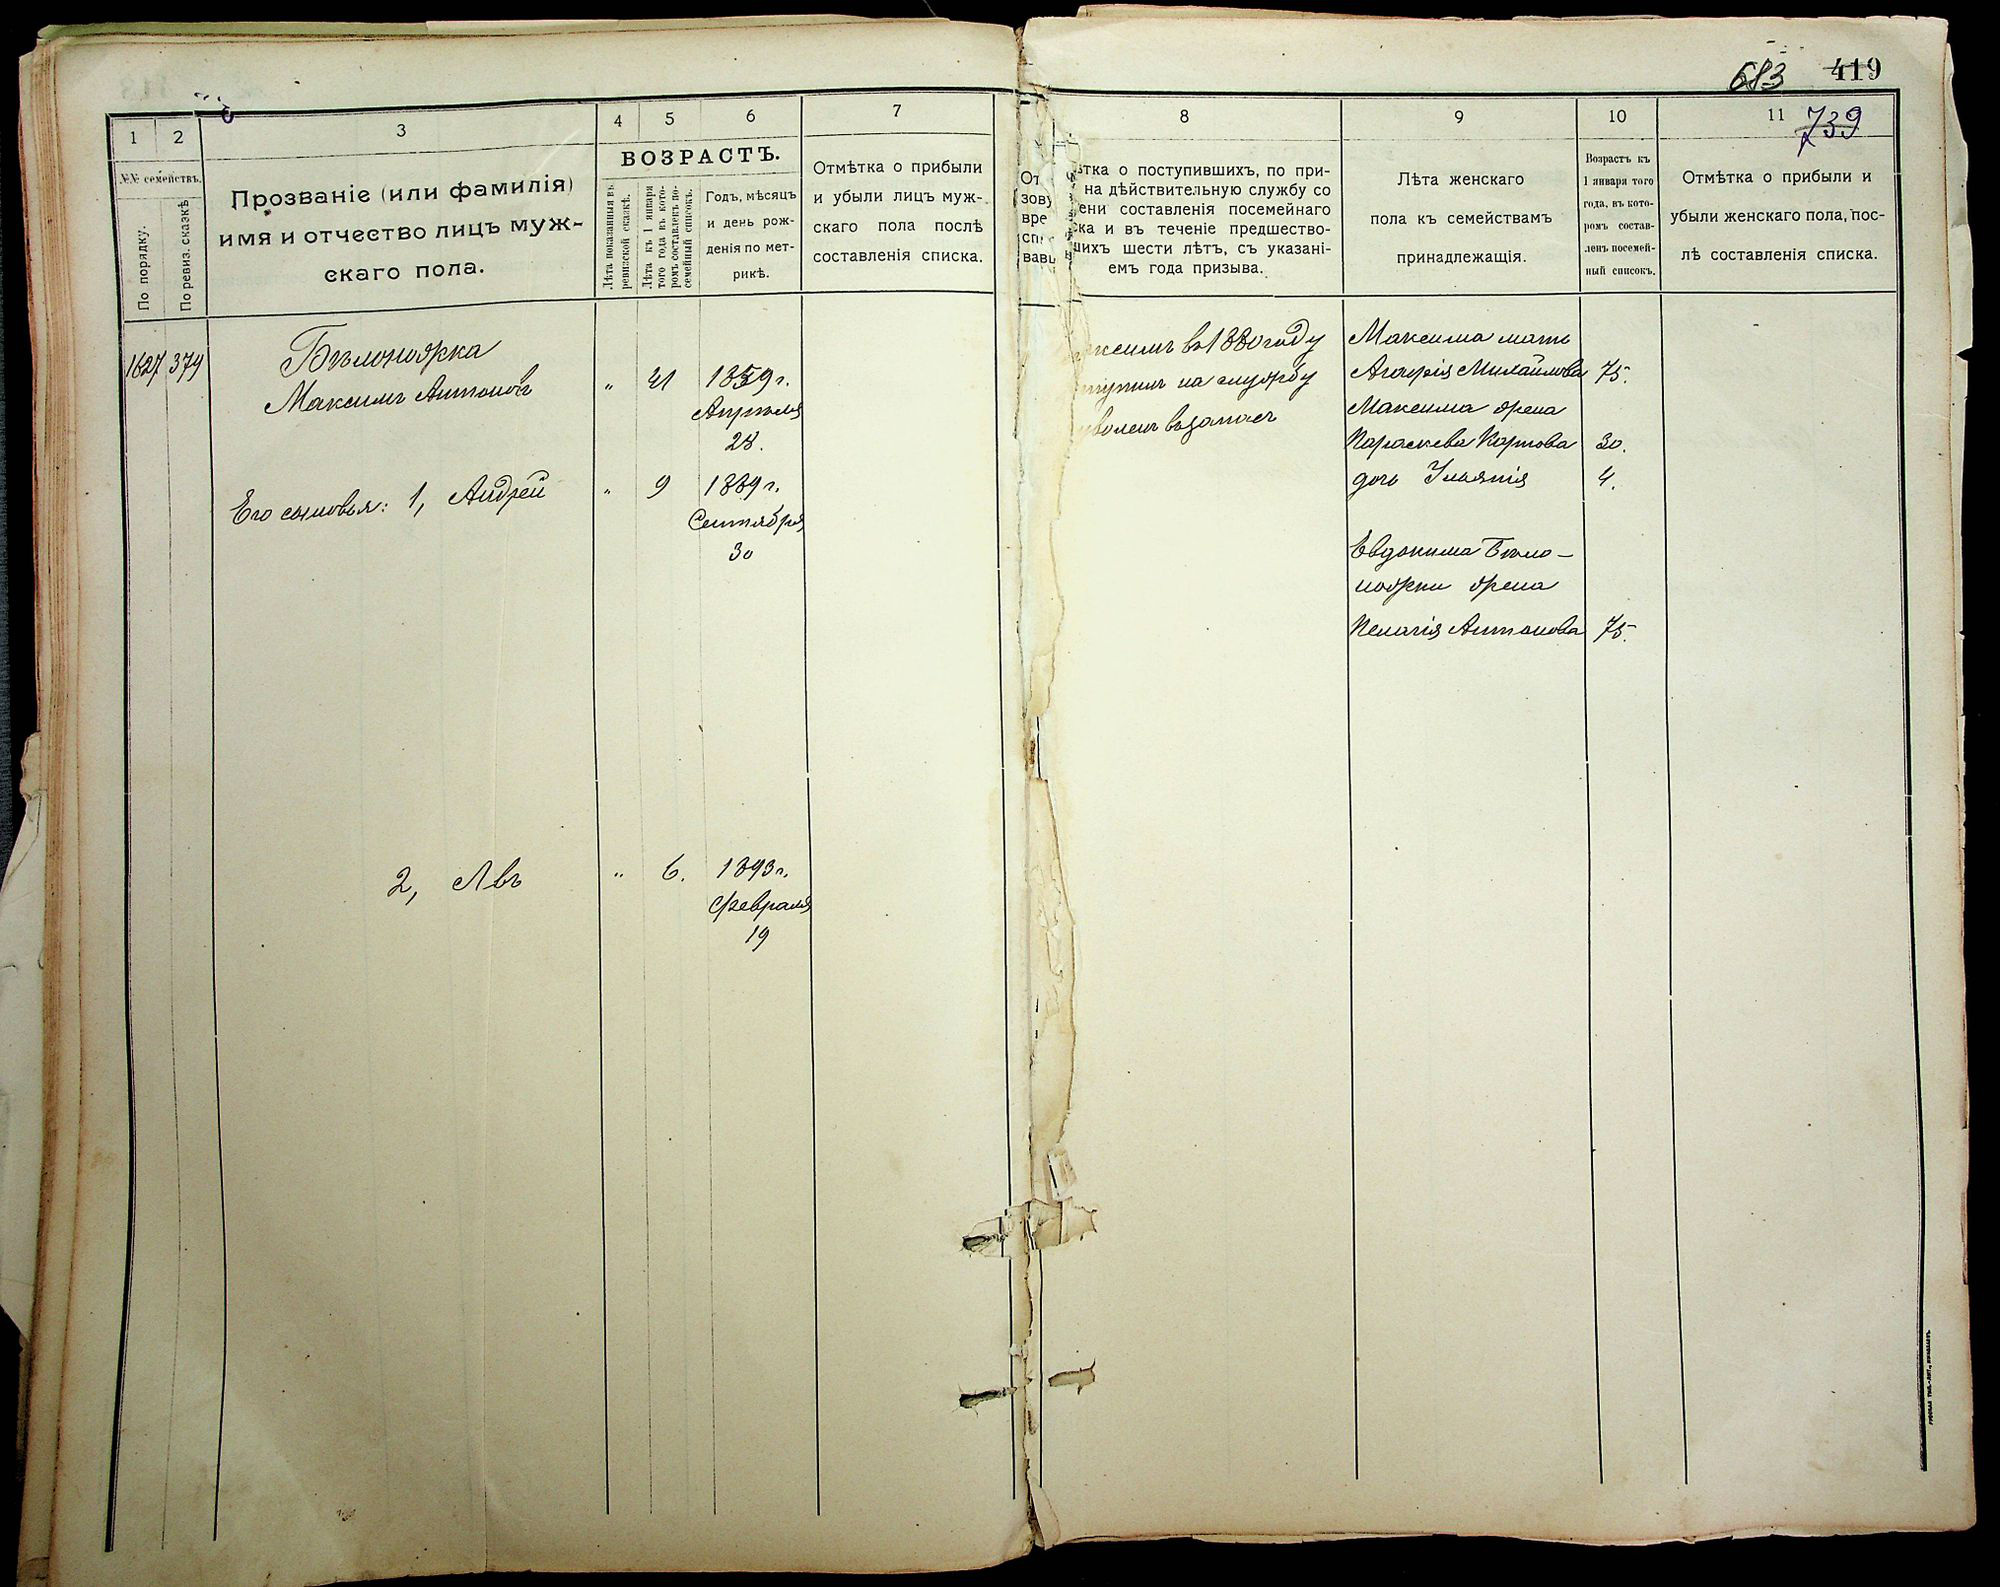 683 419
739
1
2
3
4
5
6
7
8
9
10
11
№№ семействъ.
По порядку.
По ревиз. сказкѣ
Прозваніе (или фамилія)
имя и отчество лицъ муж-
скаго пола.
ВОЗРАСТЪ.
Лѣта показанныя въ
ревизской сказкѣ.
Лѣта къ 1 января
того года въ кото-
ромъ составленъ по-
семейный списокъ.
Годъ, мѣсяцъ
и день рож-
денія по мет-
рикѣ.
Отмѣтка о прибыли
и убыли лицъ муж-
скаго пола послѣ
составленія списка.
тка о поступившихъ, по при-
на дѣйствительную службу со
ени составленія посемейнаго
ка и въ теченіе предшество-
шихъ шести лѣтъ, съ указані-
емъ года призыва.
Лѣта женскаго
пола къ семействамъ
принадлежащія.
Возрастъ къ
1 января того
года, въ кото-
ромъ состав-
ленъ посемей-
ный списокъ.
Отмѣтка о прибыли и
убыли женскаго пола, пос-
лѣ составленія списка.
1627 379
Бѣлоножка
Максимъ Антоновъ
„ 41 1859 г.
Апрѣля
28.
Его сыновья: 1, Андрей „ 9 1889 г.
Сентября
30
2, Левъ „ 6. 1893 г.
Февраля
19
ксимъ въ 1880 году
тупилъ на службу
воленъ въ запасъ
Максима мать
Агафія Михайлова 75.
Максима жена
Параскева Карпова 30.
дочь 4.
Евдокима Бѣло-
ножки жена
Пелагія Антонова 75.